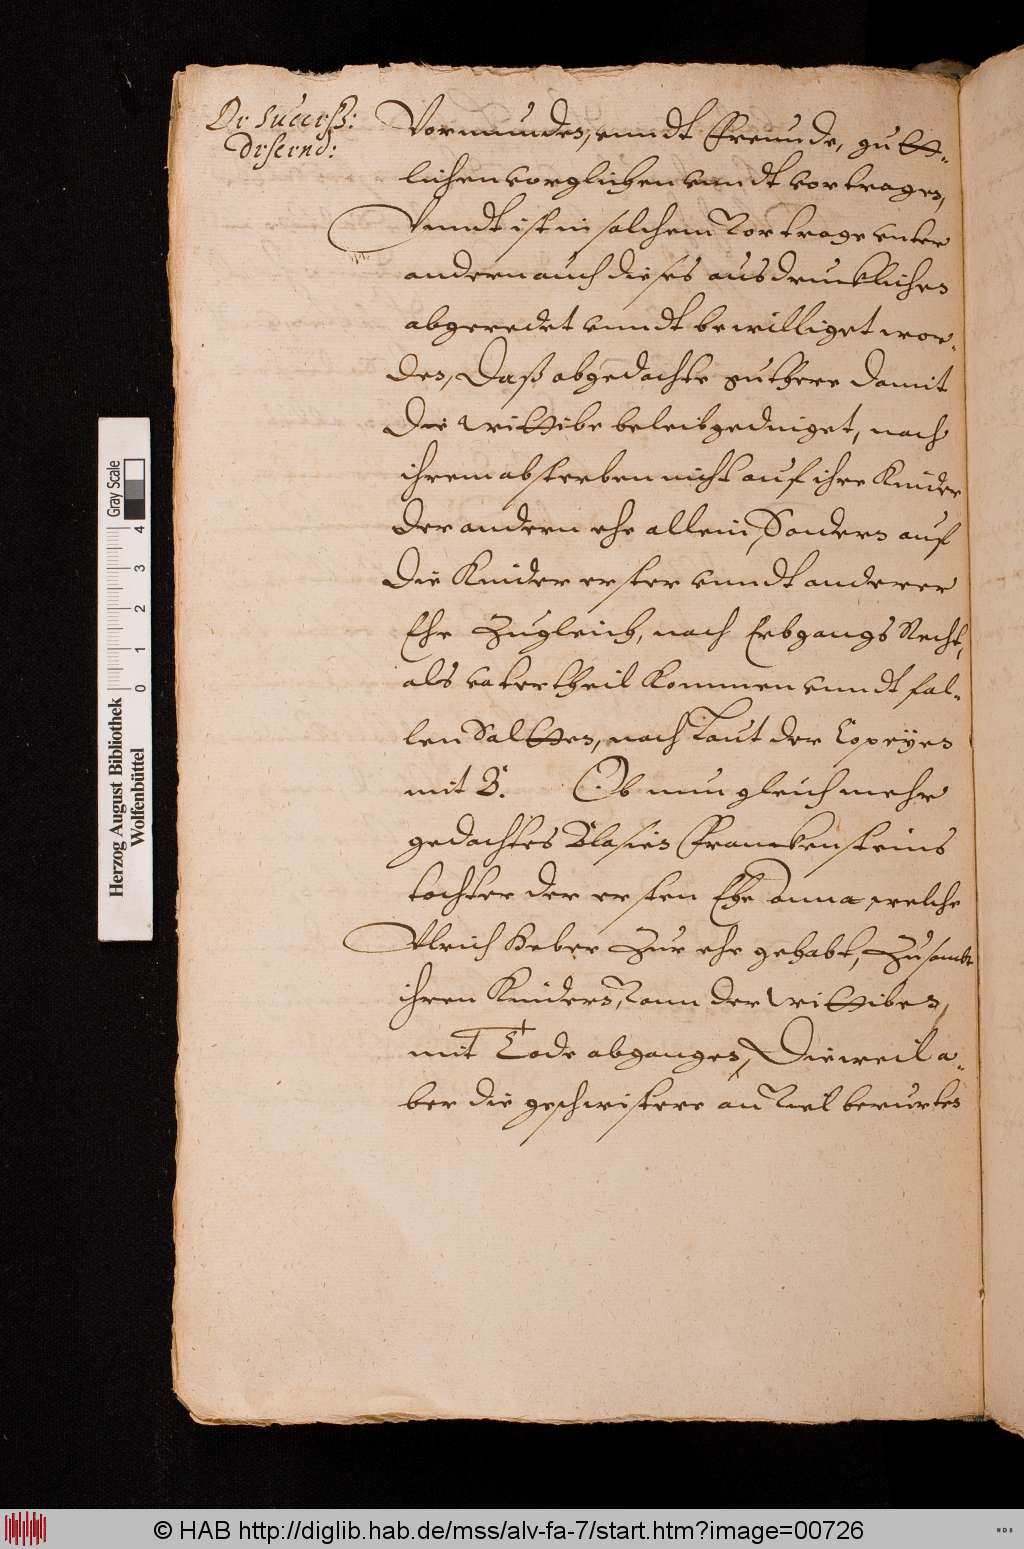 De success:
descend:
Vormunden, vnndt Freunde, gutt-
lichen vorglichen vnndt vortragen,
Vnndt ist in solchem Vortrage vnter
andern auch dieses ausdrucklichen
abgeredet vnndt bewilliget wor-
den, Daß abgedachte guthere damit
die wittibe beleibgedinget, nach
ihrem absterben nicht auf ihre Kinder
der andern ehe allein, Sondern auf
die Kinder erster vnndt anderer
Ehe Zugleich, nach Erbgangs Recht,
als vatertheil kommen vnndt fal-
len Soltten, nach Laut der Copeyen
mit B. Ob nun gleich mehr
gedachtes Blasien Franckensteins
tochter der ersten Ehe Anna, welche
Vlrich Heber Zur ehe gehabt, Zusambt
ihren Kindern, vonn der wittiben,
mit Tode abgangen, Dieweil a-
ber die geschwistere an Viel berurten
Herzog August Bibliothek
Wolfenbüttel
0 1 2 3 4
Gray Scale
© HAB http://diglib.hab.de/mss/alv-fa-7/start.htm?image=00726